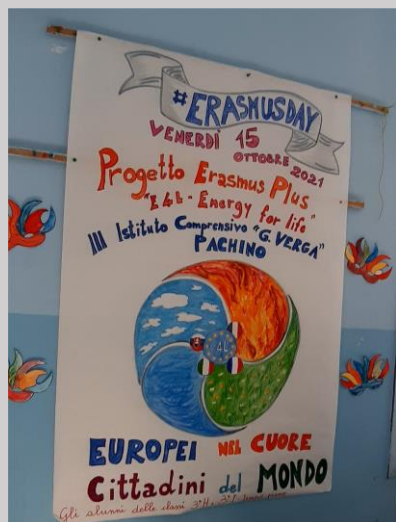 #ERASMUSDAY
VENERDÌ 15
OTTOBRE 2021
Progetto Erasmus Plus
"E4L - Energy for life"
III Istituto Comprensivo "G. VERGA"
PACHINO
EUROPEI NEL CUORE
Cittadini del MONDO
Gli alunni delle classi 3ªH e 3ª